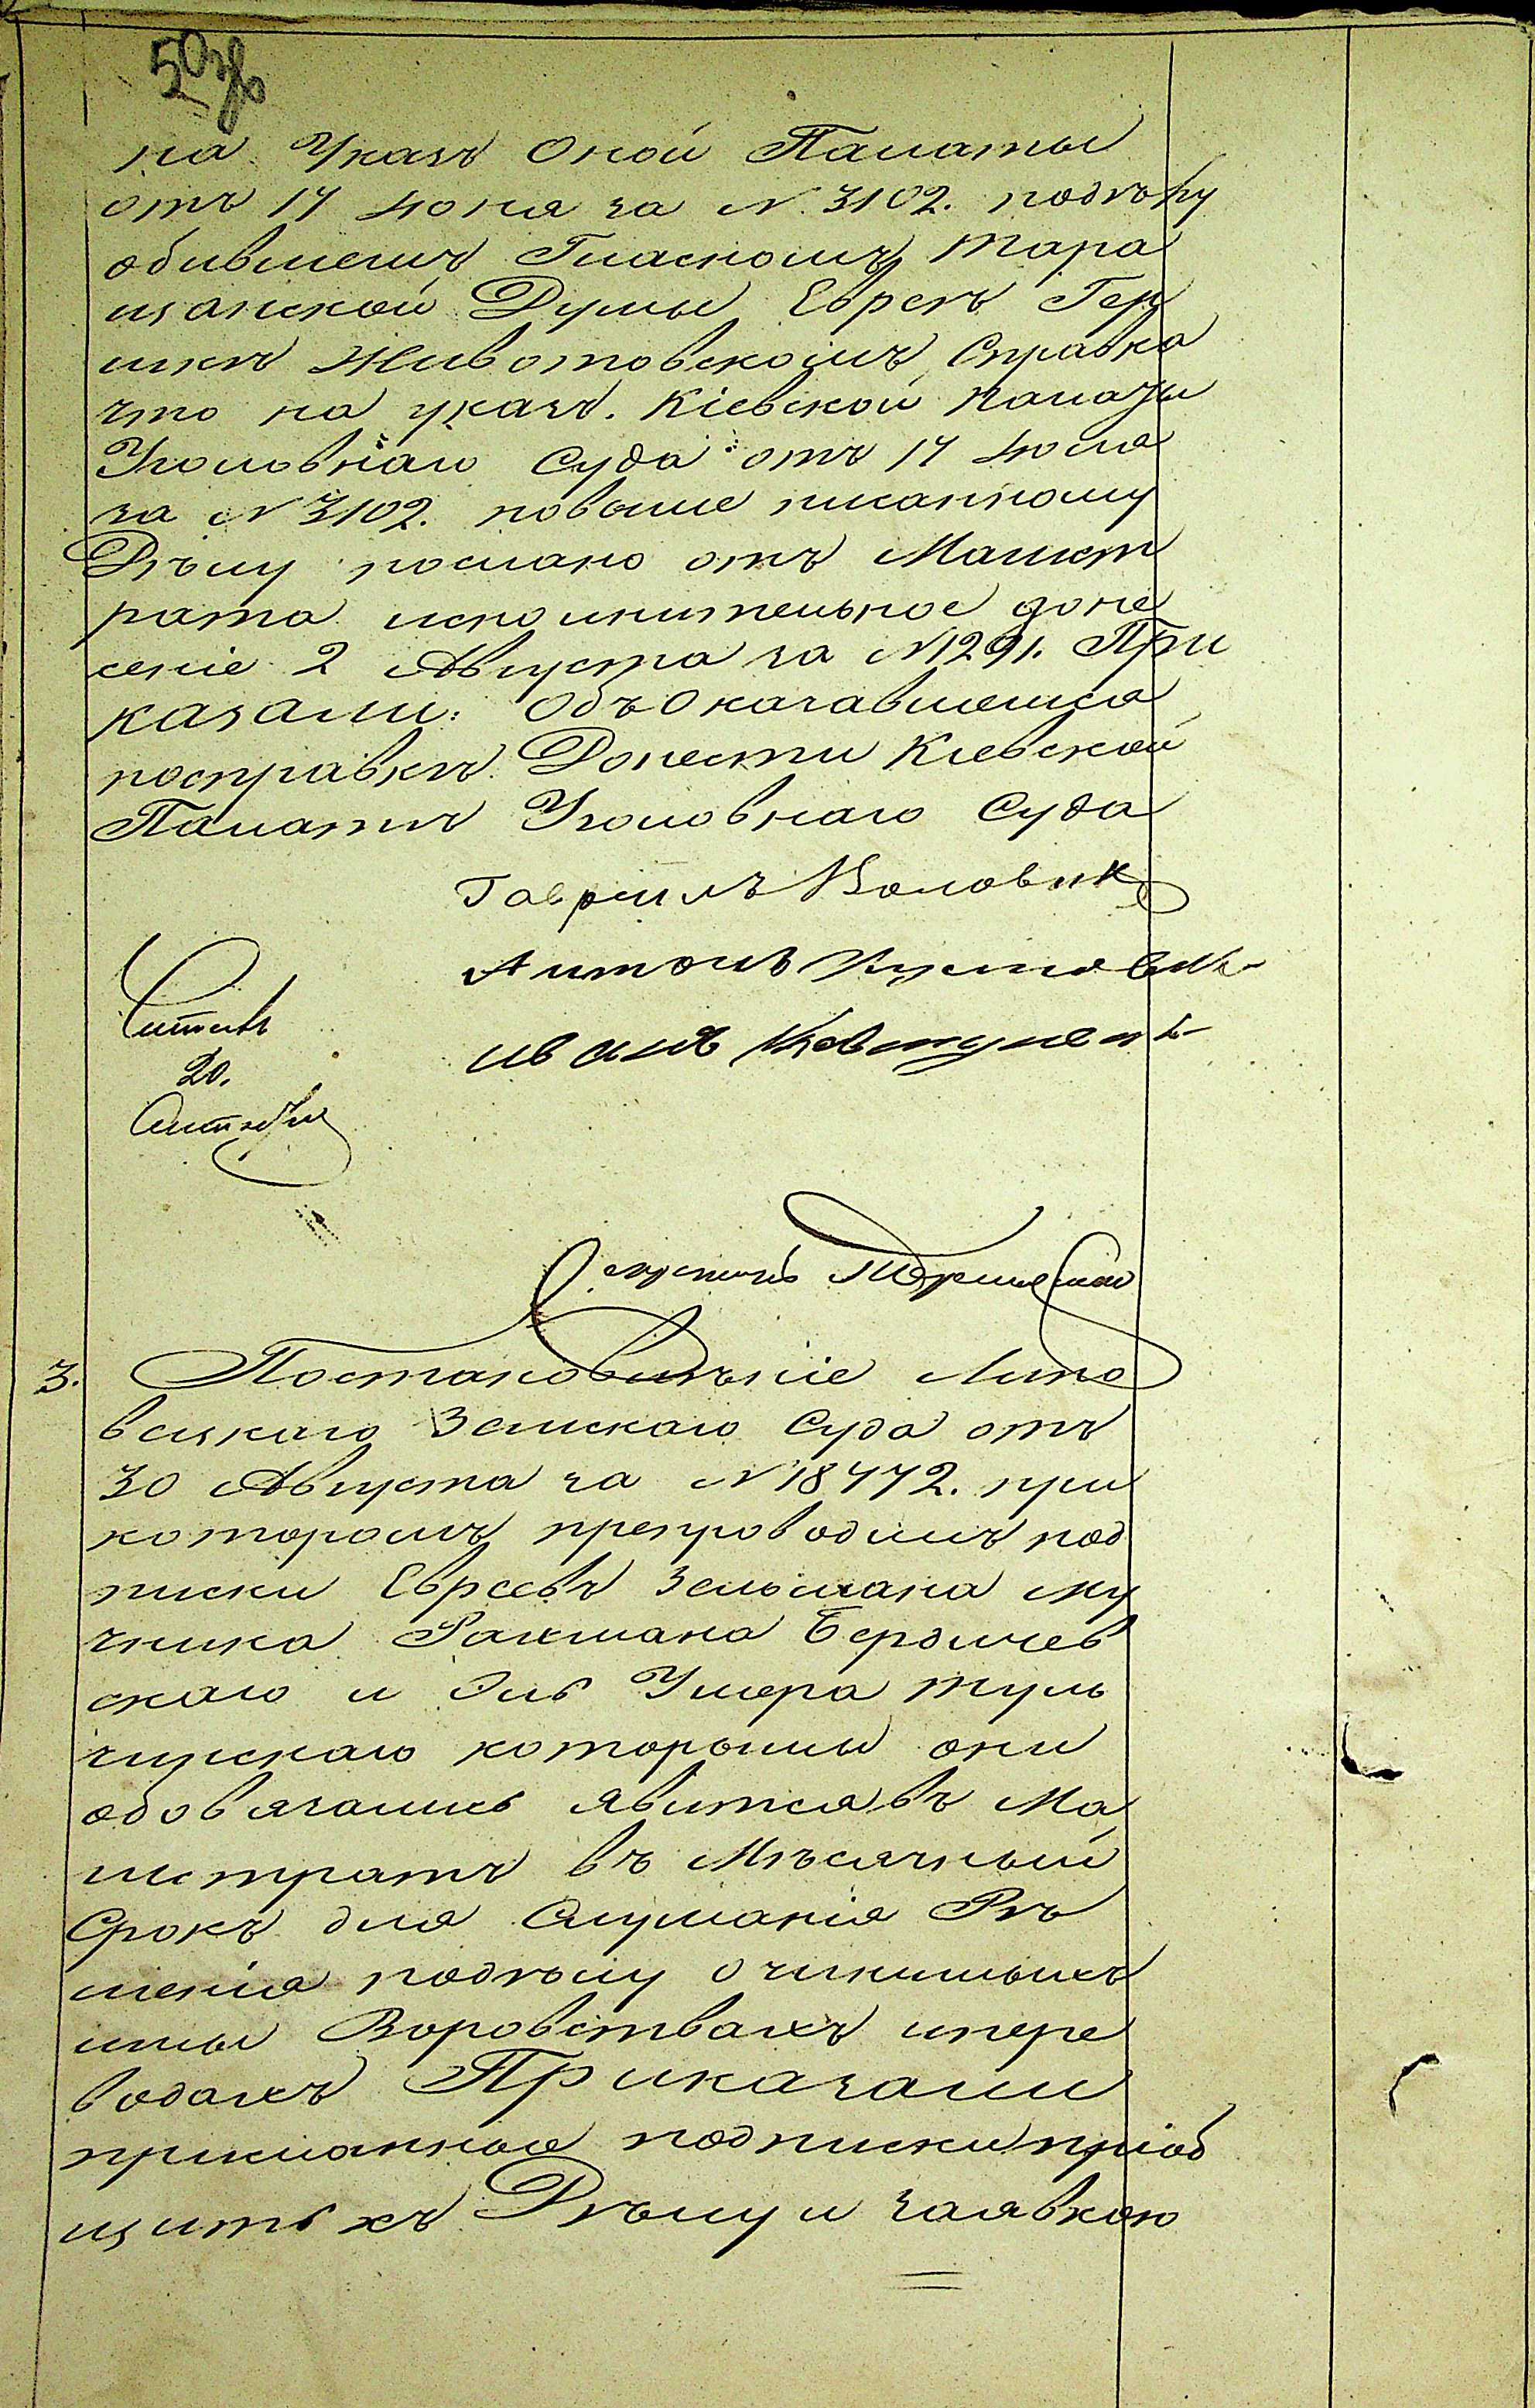 50 об
на Указъ Оной Палаты
отъ 17 Июня за N. 3102. подѣлу
обывшемъ Гласномъ Тара
щанской Думы Евреѣ Гер
шкѣ Животовскомъ, Справка
что на указъ. Кіевской палаты
Уголовнаго Суда отъ 17 Июня
за N 3102. повыше писанному
Дѣлу послано отъ Магист
рата исполнительное доне
сеніе 2 Августа за N 1291. При
казали: Объ Оказавшемся
посправкѣ Донести Кіевской
Палатѣ Уголовнаго Суда
Гавріилъ Воловик
Антонъ
иванъ
Читалъ
20.
Секретарь
3. Постановлѣніе Липо
вецкаго Земскаго Суда отъ
30 Августа за N 18472. при
которомъ препроводилъ под
писки Евреевъ Зельмана Му
чника Рахмана Бердичев
скаго и Эль Умера Туль
чинскаго которыми они
обовязались явится въ Ма
гистратъ въ Мѣсячный
Срокъ для Слушанія Рѣ
шенія подѣлу Очинимыхъ
ими Воровствахъ ипере
водахъ Приказали
присланные подписки пріоб
щить къ Дѣлу и заявкою